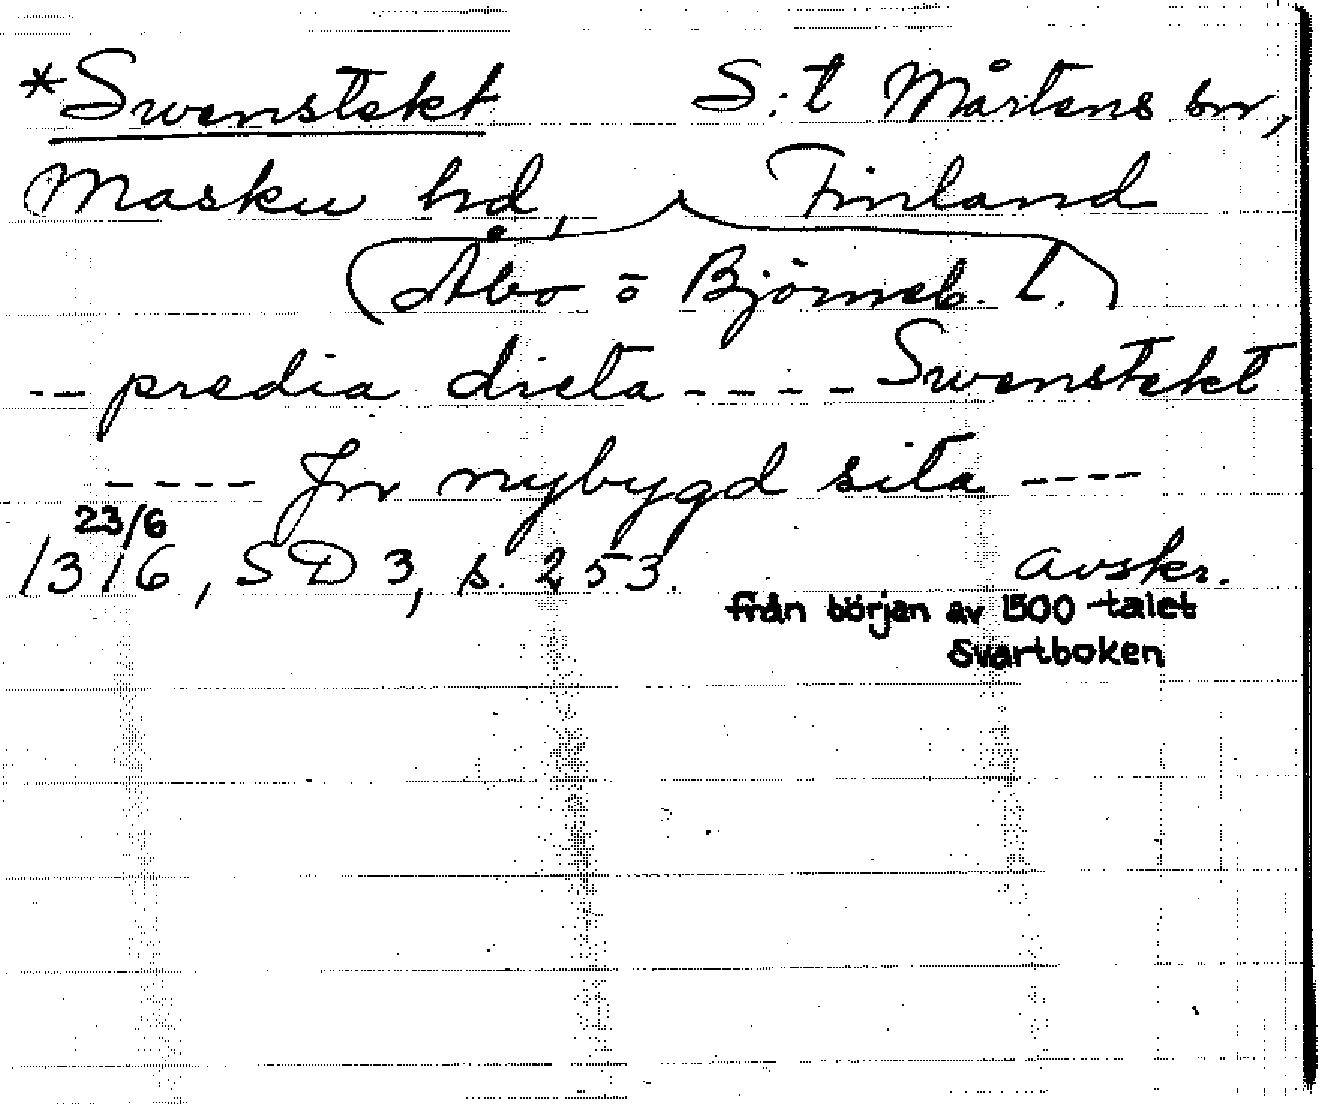 *Swenstekt S:t Mårtens sn,
Masku hd, Finland
(Åbo o Björneb. l.)
-- predia dicta ---- Swenstekt
---- Jn nybygd sita ----
23/6
1316, SD 3, s. 253. avskr.
från början av 1500-talet
Svartboken